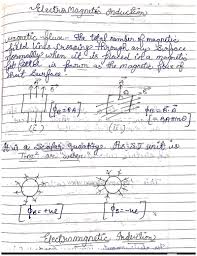 Electromagnetic Induction
magnetic flux - The total number of magnetic
field lines crossing through any surface
normally when it is placed in a magnetic
field is known as the magnetic flux of
that surface.
[ϕ=BA]
(i)
(ii)
It is a scalar quantity. Its SI unit is
Tm² or weber.
[ϕ=+ve]
[ϕ=-ve]
Electromagnetic Induction